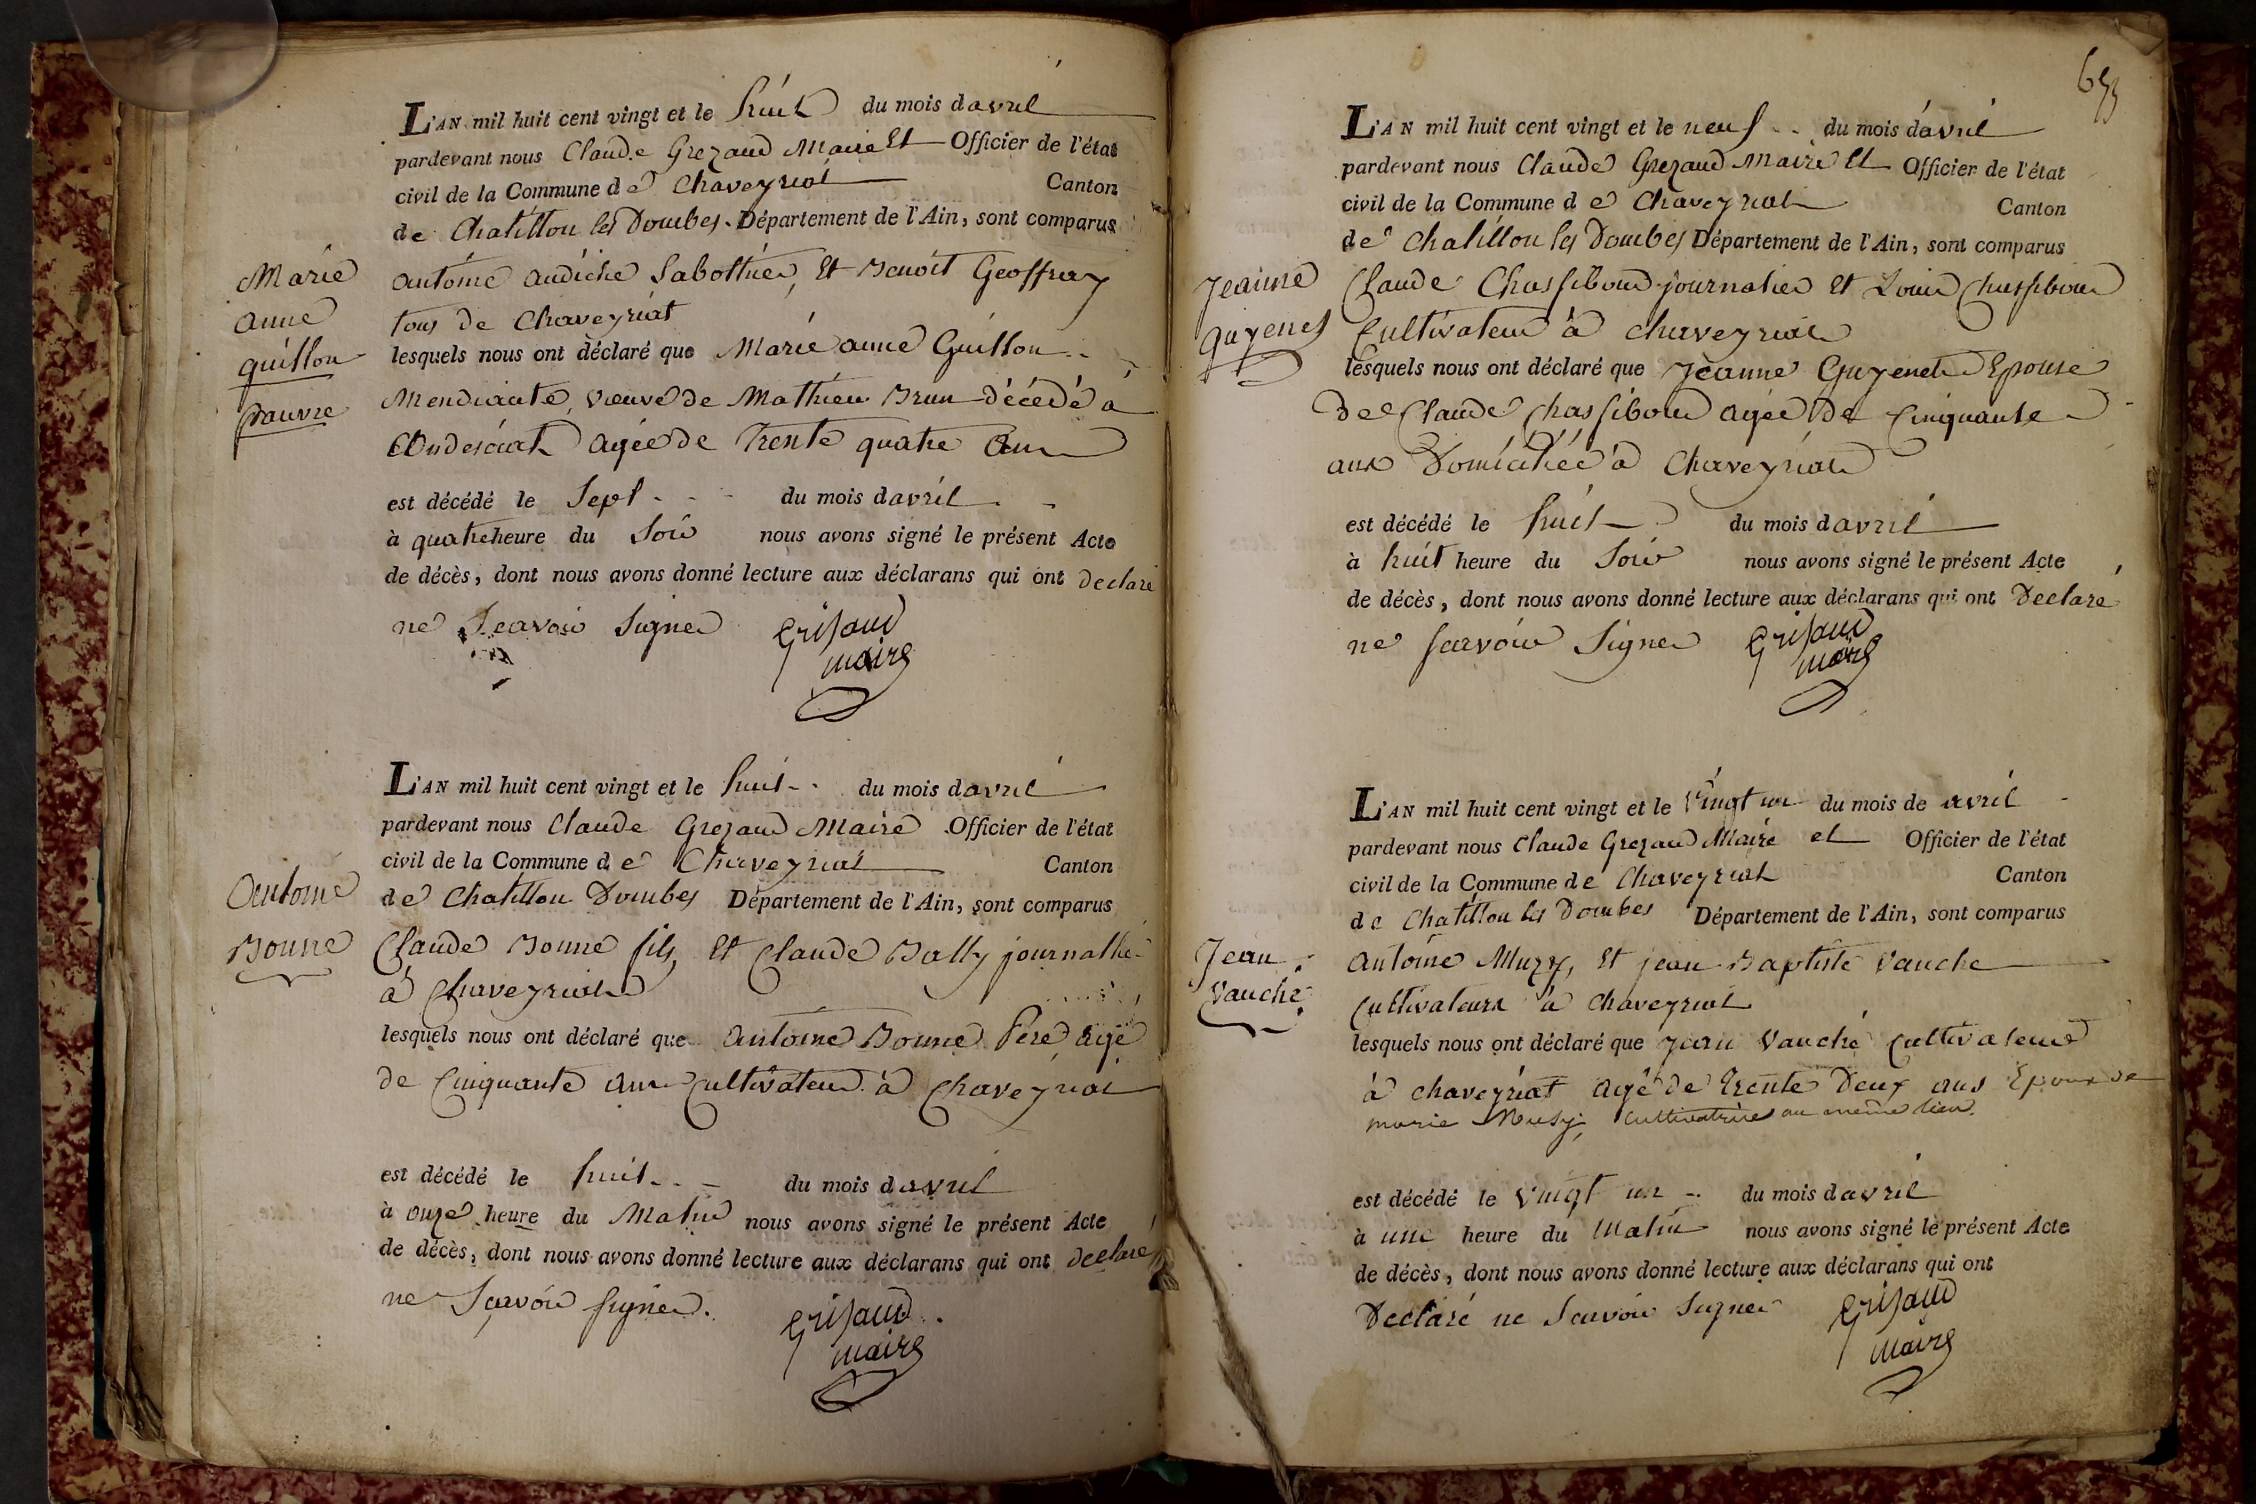 L'AN mil huit cent vingt et le huit du mois davril
pardevant nous Claude Grezaud Maire Et Officier de l'état
civil de la Commune de Chaveyriat Canton
de Chatillon les Dombes. Département de l'Ain, sont comparus
Marie
anne
guillon
pauvre
antoine audiche Sabottier, Et Benoit Geoffray
tous de Chaveyriat
lesquels nous ont déclaré que Marie anne Guillon
Mendiante, veuve de Mathieu Brun décédé à
Condesciat agée de trente quatre ans
est décédé le Sept du mois davril
à quatre heure du Soir nous avons signé le présent Acte
de décès, dont nous avons donné lecture aux déclarans qui ont declaré
ne Scavoir Signer Grisaud
maire
L'AN mil huit cent vingt et le huit du mois davril
pardevant nous Claude Grezaud Maire Officier de l'état
civil de la Commune de Chaveyriat Canton
de Chatillon Dombes Département de l'Ain, sont comparus
Antoine
Bonne
Claude Bonne fils, Et Claude Bally journallie
à Chaveyriat
lesquels nous ont déclaré que antoine Bonne Pere agé
de Cinquante ans Cultivateur à Chaveyriat
est décédé le huit du mois davril
à onze heure du Matin nous avons signé le présent Acte
de décès, dont nous avons donné lecture aux déclarans qui ont declaré
ne Sçavoir signer. Grisaud
maire
653
L'AN mil huit cent vingt et le neuf du mois davril
pardevant nous Claude Grezaud Maire Et Officier de l'état
civil de la Commune de Chaveyriat Canton
de Chatillon les Dombes Département de l'Ain, sont comparus
Jeanne
guyenet
Claude Chassiboud journalier Et Louis Chassiboud
Cultivateur à Chaveyriat
lesquels nous ont déclaré que Jeanne Guyenet Epouse
de Claude Chassiboud agée de Cinquante
ans Domiciliée à Chaveyriat
est décédé le huit du mois davril
à huit heure du Soir nous avons signé le présent Acte
de décès, dont nous avons donné lecture aux déclarans qui ont Declaré
ne scavoir Signer Grisaud
maire
L'AN mil huit cent vingt et le Vingt un du mois de avril
pardevant nous Claude Grezaud Maire et Officier de l'état
civil de la Commune de Chaveyriat Canton
de Chatillon les Dombes Département de l'Ain, sont comparus
Jean
Vauché
Antoine Muzy, Et jean Baptiste Vauche
Cultivateurs à Chaveyriat
lesquels nous ont déclaré que Jean Vauché Cultivateur
à chaveyriat agé de trente Deux ans Epoux de
marie Musy, cultivatrice au même lieu.
est décédé le Vingt un du mois davril
à une heure du Matin nous avons signé le présent Acte
de décès, dont nous avons donné lecture aux déclarans qui ont
Declaré ne Scavoir Signer Grisaud
maire